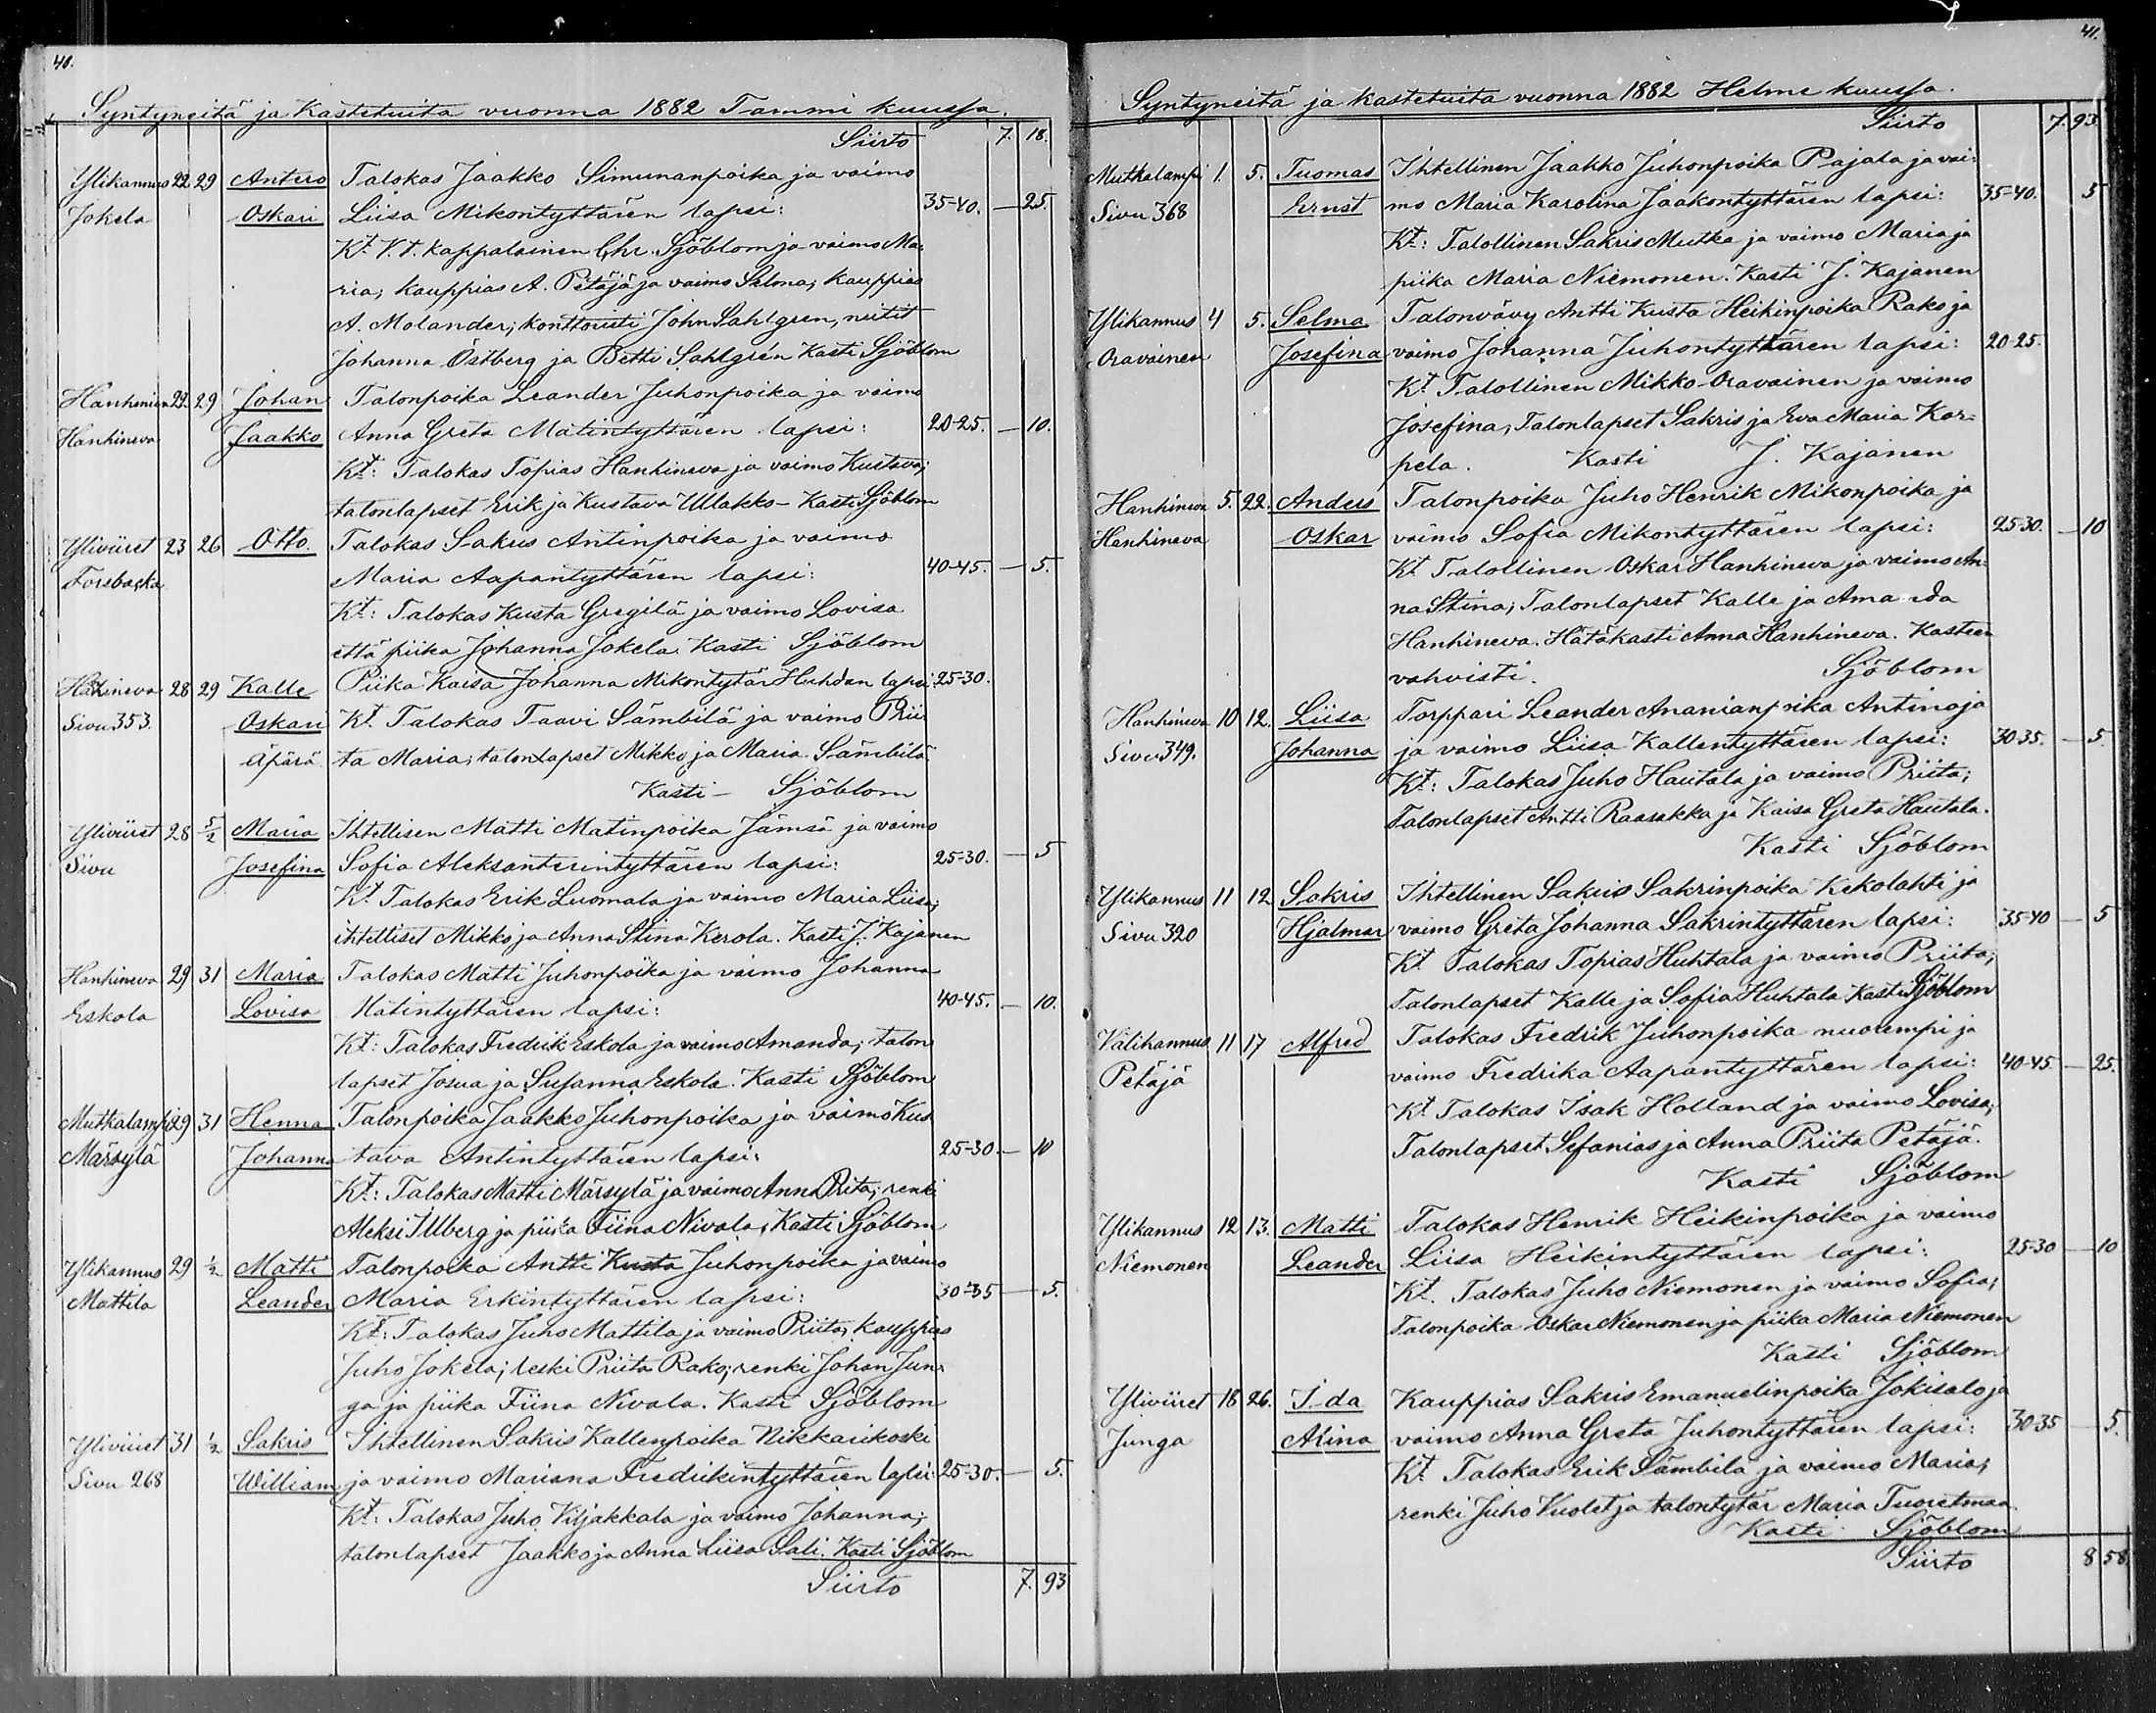 40.
Syntyneitä ja Kastetuita vuonna 1882 Tammi kuussa.
Siirto 7. 18.
Ylikannus 22 29 Antero Talokas Jaakko Simunanpoika ja vaimo
Jokela Oskari Liisa Mikontyttären lapsi: 35-40. — 25.
Kt. V.t. Kappalainen Chr. Sjöblom ja vaimo Ma-
ria; Kauppias A. Petäjä ja vaimo Selona; Kauppias
A. Molander; Konttoristi John Sahlgren, neitit
Johanna Östberg ja Betti Sahlgrén Kasti Sjöblom
Hanhinewa 22. 29 Johan Talonpoika Leander Juhonpoika ja vaimo
Hanhineva Jaakko Anna Greta Matintyttären lapsi: 20-25. — 10.
Kt: Talokas Topias Hanhineva ja vaimo Kustava;
talonlapset Erik ja Kustava Ullakko - Kasti Sjöblom
Yliviiret 23 26 Otto. Talokas Sakris Antinpoika ja vaimo
Forsbacka Maria Aapantyttären lapsi: 40-45. — 5.
Kt: Talokas Kusta Gregilä ja vaimo Lovisa
että piika Johanna Jokela. Kasti Sjöblom
Hanhineva 28 29 Kalle Piika Kaisa Johanna Mikontytär Huhdan lapsi 25-30.
Sivu 353. Oskari Kt. Talokas Taavi Sämbilä ja vaimo Prii
Äpärä ta Maria; talonlapset Mikko ja Maria Sämbilä
Kasti - Sjöblom
Yliviiret 28 5/2 Maria Ihtellisen Matti Matinpoika Jämsä ja vaimo
Sivu Josefina Sofia Aleksanterintyttären lapsi: 25-30. — 5
Kt. Talokas Erik Luomala ja vaimo Maria Liisa;
ihtelliset Mikko ja Anna Stina Kerola. Kasti J. Kajanen
Hanhineva 29 31 Maria Talokas Matti Juhonpoika ja vaimo Johanna
Eskola Lovisa Matintyttären lapsi: 40-45. — 10.
Kt: Talokas Fredrik Eskola ja vaimo Amanda; talon
lapset Josua ja Susanna Eskola. Kasti Sjöblom
Mutkalampi 29 31 Henna Talonpoika Jaakko Juhonpoika ja vaimo Kus
Märsylä Johanna tava Antintyttären lapsi: 25-30. — 10
Kt: Talokas Matti Märsylä ja vaimo Anna Prita; renki
Aleksi Illberg ja piika Fiina Nivala, Kasti Sjöblom
Ylikannus 29 1/2 Matti Talonpoika Antti Kusta Juhonpoika ja vaimo
Mattila Leander Maria Erkintyttären lapsi: 30-35 — 5.
Kt: Talokas Juho Mattila ja vaimo Priita; Kauppias
Juho Jokela; leski Priita Rako; renki Johan Jun
ga ja piika Fiina Nivala. Kasti Sjöblom
Yliviiret 31 1/2 Sakris Ihtellinen Sakris Kallenpoika Nikkarikoski
Sivu 268 William ja vaimo Mariana Fredrikintyttären lapsi: 25-30. — 5.
Kt: Talokas Juho Viljakkala ja vaimo Johanna;
talonlapset Jaakko ja Anna Liisa Sali. Kasti Sjöblom
Siirto 7. 93
41.
Syntyneitä ja kastetuita vuonna 1882 Helme kuussa.
Siirto 7. 93.
Mutkalampi 1. 5. Tuomas Ihtellinen Jaakko Juhonpoika Pajala ja vai-
Sivu 368 Ernst mo Maria Karolina Jaakontyttären lapsi: 35-40. 5
Kt: Talollinen Sakris Mutka ja vaimo Maria ja
piika Maria Niemonen. Kasti J. Kajanen
Ylikannus 4 5. Selma Talonvävy Antti Kusta Heikinpoika Rako ja
Oravainen Josefina vaimo Johanna Juhontyttären lapsi: 20-25.
Kt. Talollinen Mikko Oravainen ja vaimo
Josefina, Talonlapset Sakris ja Eva Maria Kor-
pela. Kasti J. Kajanen
Hanhineva 5. 22. Anders Talonpoika Juho Henrik Mikonpoika ja
Hanhineva Oskar vaimo Sofia Mikontyttären lapsi: 25-30. — 10
Kt. Talollinen Oskar Hanhineva ja vaimo An-
na Stina; Talonlapset Kalle ja Amanda
Hanhineva. Hätäkasti Anna Hanhineva. Kasteen
vahvisti. Sjöblom
Hanhineva 10 12. Liisa Torppari Leander Ananianpoika Antinoja
Sivu 349. Johanna ja vaimo Liisa Kallentyttären lapsi: 30-35. — 5.
Kt: Talokas Juho Hautala ja vaimo Priita;
Talonlapset Antti Raasakka ja Kaisa Greta Hautala.
Kasti Sjöblom
Ylikannus 11 12 Sakris Ihtellinen Sakris Sakrinpoika Kekolahti ja
Sivu 320 Hjalmar vaimo Greta Johanna Sakrintyttären lapsi: 35-40 — 5
Kt. Talokas Topias Huhtala ja vaimo Priita;
Talonlapset Kalle ja Sofia Huhtala Kasti Sjöblom
Välikannus 11 17 Alfred Talokas Fredrik Juhonpoika nuorempi ja
Petäjä vaimo Fredrika Aapantyttären lapsi: 40-45. — 25.
Kt. Talokas Isak Holland ja vaimo Lovisa;
Talonlapset Sefanias ja Anna Priita Petäjä.
Kasti Sjöblom
Ylikannus 12 13. Matti Talokas Henrik Heikinpoika ja vaimo
Niemonen Leander Liisa Heikintyttären lapsi: 25-30 — 10
Kt. Talokas Juho Niemonen ja vaimo Sofia;
Talonpoika Oskar Niemonen ja piika Maria Niemonen
Kasti Sjöblom
Yliviiret 18 26. Ida Kauppias Sakris Emanuelinpoika Jokisalo ja
Junga Alina vaimo Anna Greta Juhontyttären lapsi: 30-35 — 5.
Kt. Talokas Erik Sämbilä ja vaimo Maria;
renki Juho Vuolet ja talontytär Maria Tuoretmaa.
Kasti Sjöblom
Siirto 8 58